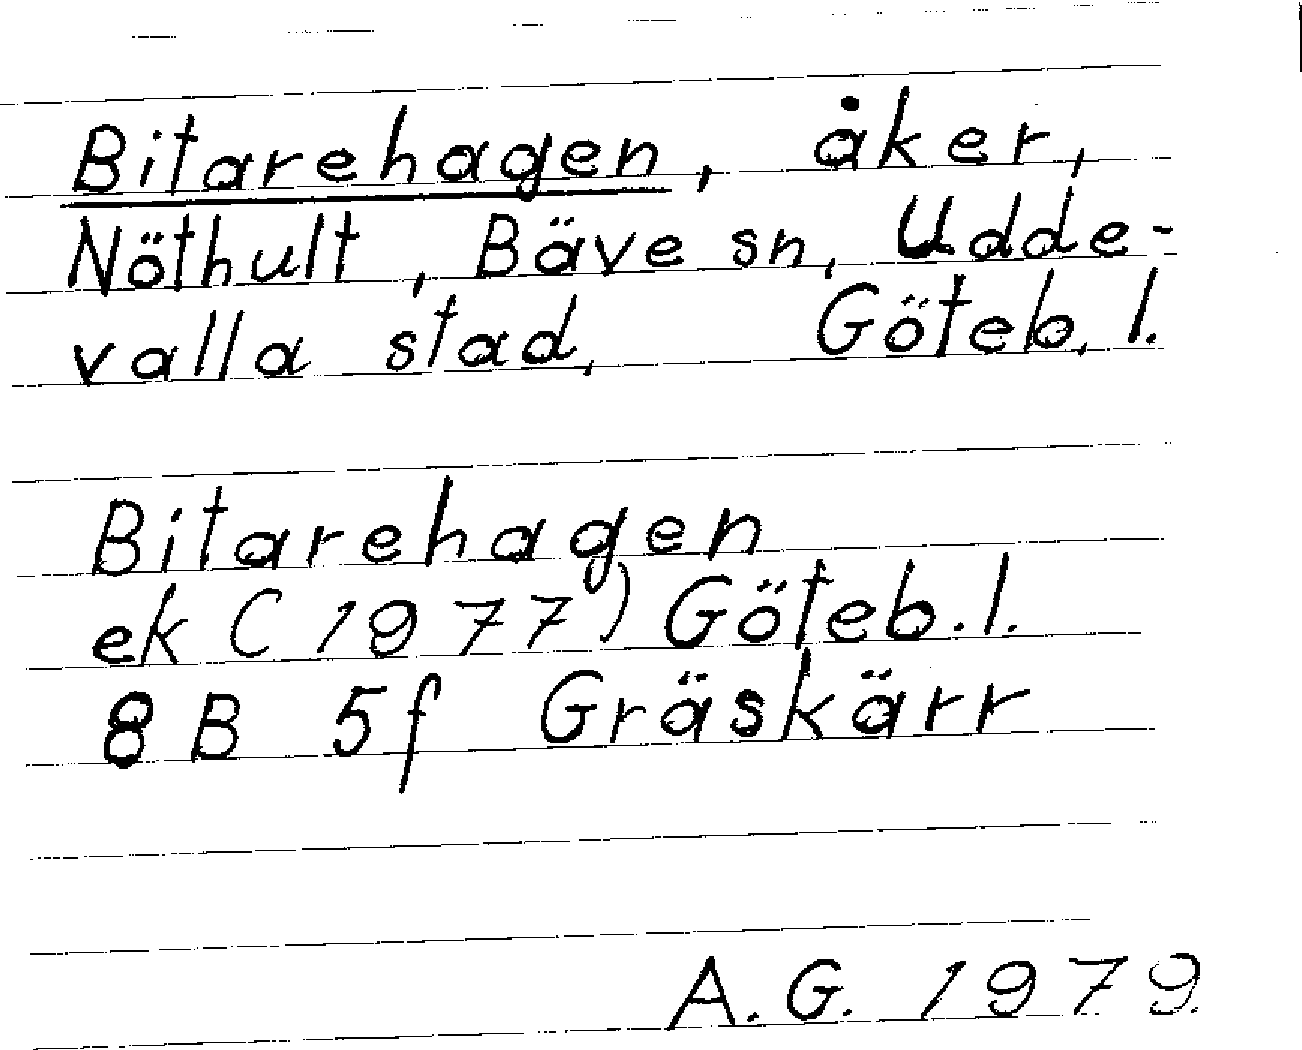 Bitarehagen, åker,
Nöthult, Bäve sn, Udde-
valla stad, Göteb. l.
Bitarehagen
ek (1977) Göteb. l.
8 B 5f Gräskärr
A. G. 1979.